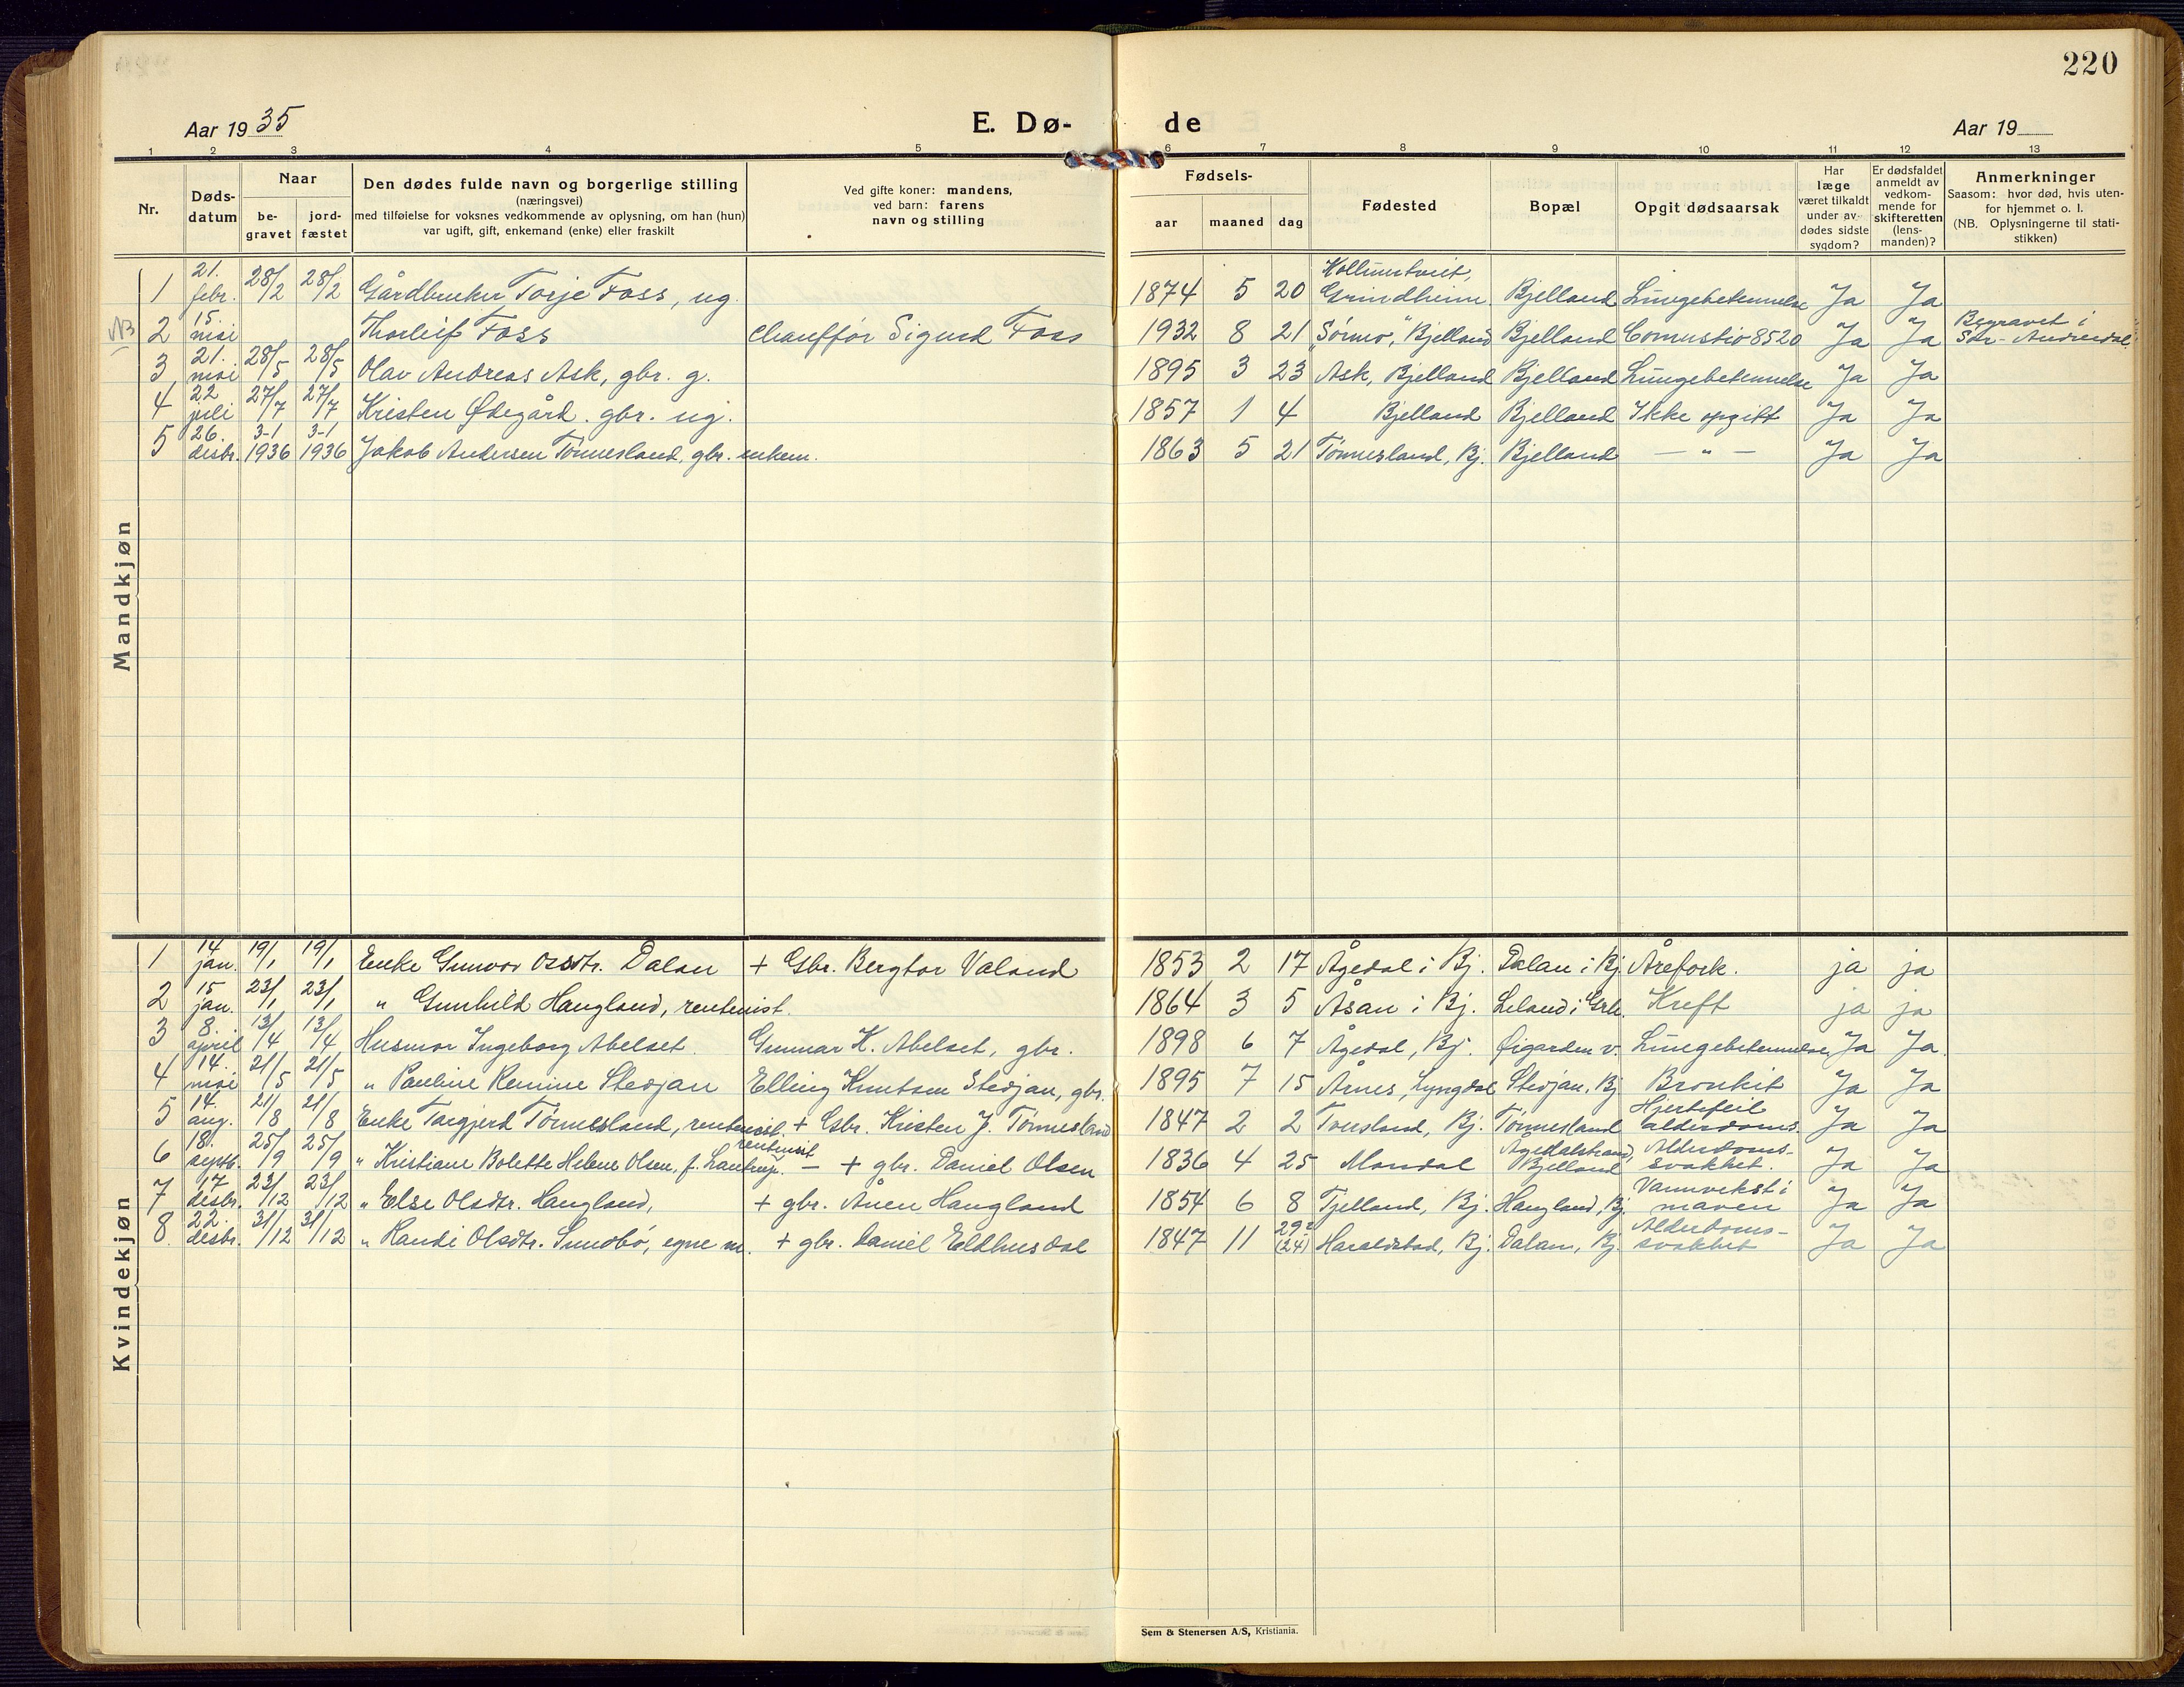 220
Aar 1935
E. Dø-
de
Aar 19
1 2 3 4 5 6 7 8 9 10 11 12 13
Nr.
Døds-
datum
Naar
be-
gravet
jord-
fæstet
Den dødes fulde navn og borgerlige stilling
(næringsvei)
med tilføielse for voksnes vedkommende av oplysning, om han (hun)
var ugift, gift, enkemand (enke) eller fraskilt
Ved gifte koner: mandens,
ved barn: farens
navn og stilling
Fødsels-
aar maaned dag
Fødested
Bopæl
Opgit dødsaarsak
Har
læge
været tilkaldt
under av-
dødes sidste
sygdom?
Er dødsfaldet
anmeldt av
vedkom-
mende for
skifteretten
(lens-
manden)?
Anmerkninger
Saasom: hvor død, hvis uten-
for hjemmet o. l.
(NB. Oplysningerne til stati-
stikken)
Mandkjøn
1 21. febr. 28/2 28/2 Gårdbruker Torje Foss, ug. 1874 5 20 Grindheim Bjelland Lungebetennelse Ja Ja
NB 2 15. mai Thorleif Foss Chauffør Sigurd Foss 1932 8 21 "Sørmo", Bjelland Bjelland 8520 Ja Ja Begravet i
3 21. mai 28/5 28/5 Olav Andreas Ask, gbr. g. 1895 3 23 Ask, Bjelland Bjelland Lungebetennelse Ja Ja
4 22 juli 27/7 27/7 Kristen Ødegård. gbr. ug. 1857 1 4 Bjelland Bjelland Ikke opgitt Ja Ja
5 26. desbr. 3-1 1936 3-1 1936 Jakob Andersen Tønnesland, gbr. enkem. 1863 5 21 Tønnesland, Bj. Bjelland — " — Ja Ja
Kvindekjøn
1 14. jan. 19/1 19/1 Enke Gunvor Osdtr. Dalan + Gbr. Bergtor Valand 1853 2 17 Ågedal i Bj. Dalan i Bj. Årefork. ja ja
2 15 jan. 23/1 23/1 " Gunhild Haugland, rentenist. 1864 3 5 Åsan i Bj. Leland i Grh. Kreft ja ja
3 8. april 13/4 13/4 Husmor Ingeborg Abelset. Gunnar K. Abelset, gbr. 1898 6 7 Ågedal, Bj. Øigarden v. Lungebetennelse Ja Ja.
4 14. mai 21/5 21/5 " Pauline Remine Stedjan Elling Knutsen Stedjan, gbr. 1895 7 15 Årnes, Lyngdal Stedjan, Bj Bronkit Ja Ja
5 14. aug. 21/8 21/8 Enke Targjerd Tønnesland, rentenist. + Gbr. Kristen J. Tønnesland 1847 2 2 Tversland, Bj. Tønnesland Hjertefeil alderdoms. Ja Ja
6 18. septb. 25/9 25/9 " Kristiane Bolette Helene Olsen, f. Lautrup. rentenist — + gbr. Daniel Olsen 1836 4 25 Mandal Ågedalstrand, Bjelland Alderdoms- svakhet. Ja Ja
7 17 desbr. 23/12 23/12 " Else Olsdtr. Haugland, + gbr. Ånen Haugland 1854 6 8 Tjelland, Bj. Haugland, Bj. Vannvekst i maven Ja Ja
8. 22. desbr. 31/12 31/12 " Randi Olsdtr. Sundbø, egne m. + gbr. Daniel Eldhusdal 1847 11 29? (24) Haraldstad, Bj. Dalan, Bj. Alderdoms- svakhet Ja Ja
Sem & Stenersen A/S, Kristiania.